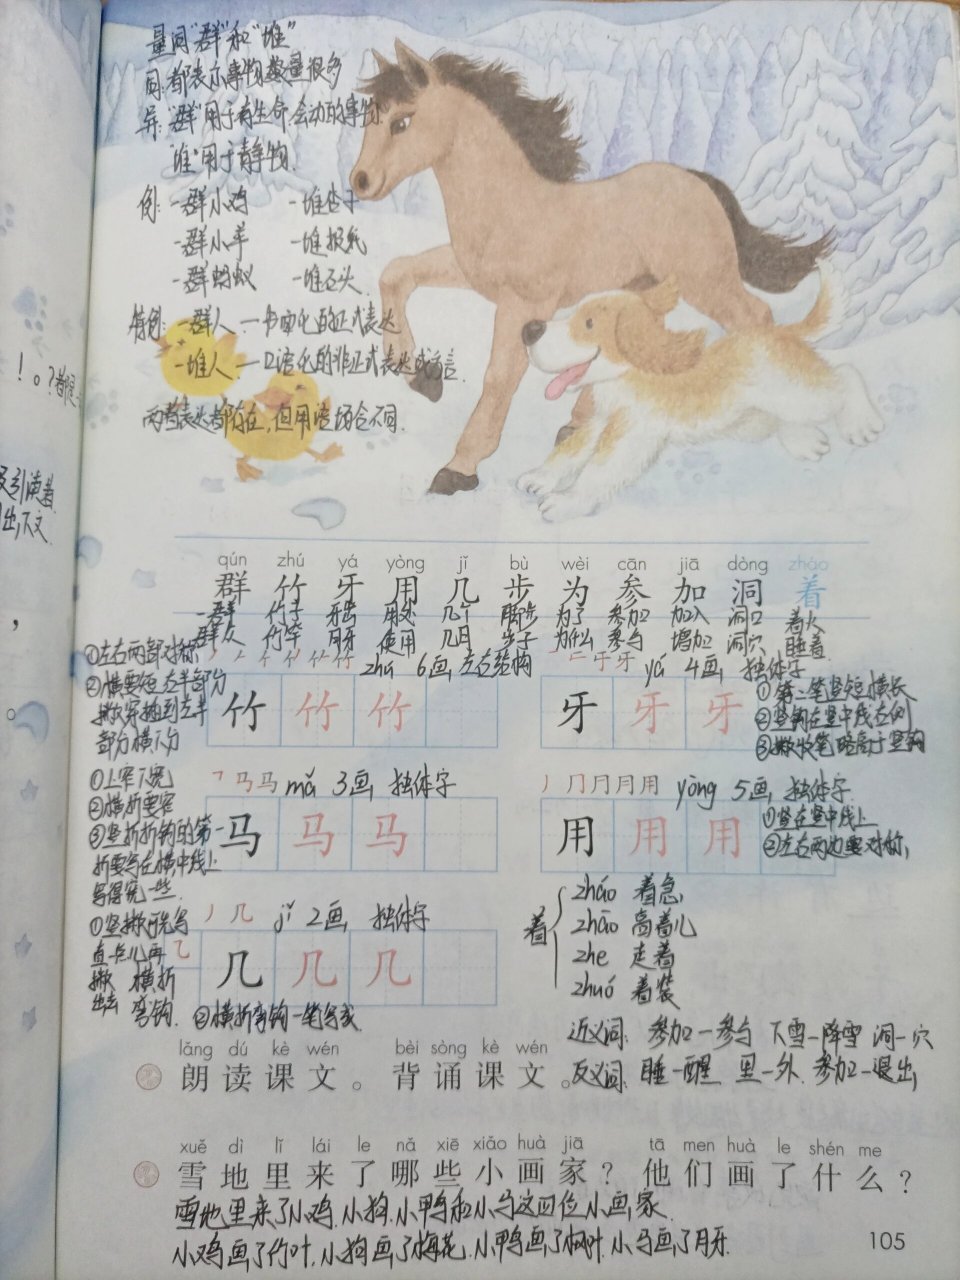 量词"群"和"堆"
同:都表示事物数量很多
异:"群"用于有生命、会动的事物.
"堆"用于静物.
例:一群小鸡 一堆杏子
一群小羊 一堆报纸
一群蚂蚁 一堆石头
特例:一群人 — 书面化的正式表达
一堆人 — 口语化的非正式表达或方言.
两者表达都存在,但用语场合不同.
!。?都是
引读着
出下文
,
。
qún zhú yá yòng jǐ bù wèi cān jiā dòng zháo
群 竹 牙 用 几 步 为 参 加 洞 着
一群 竹子 牙齿 用处 几个 脚步 为了 参加 加入 洞口 着火
群众 竹竿 月牙 使用 几日 步子 为什么 参与 增加 洞穴 睡着
zhú 6画,左右结构
竹 竹 竹
①左右两部对称,
②横要短,左半部分
撇穿插到左半
部分横下分
yá 4画,独体字
牙 牙 牙
①第二笔竖短横长
②竖钩在竖中线右侧
③撇收笔略高于竖钩
mǎ 3画,独体字
马 马 马
①上窄下宽
②横折要窄
③竖折折钩的第一
折要写在横中线上
写得宽一些.
yòng 5画,独体字.
用 用 用
①竖在竖中线上
②左右两边要对称,
jǐ 2画,独体字
几 几 几
①竖撇先写
直一点儿再
撇出去 横折弯钩.
②横折弯钩一笔写成
着 zháo 着急
zhāo 高着儿
zhe 走着
zhuó 着装
近义词:参加—参与 下雪—降雪 洞—穴
反义词:睡—醒 里—外 参加—退出
lǎng dú kè wén bèi sòng kè wén
朗读课文。背诵课文。
xuě dì lǐ lái le nǎ xiē xiǎo huà jiā tā men huà le shén me
雪地里来了哪些小画家?他们画了什么?
雪地里来了小鸡、小狗、小鸭和小马这四位小画家.
小鸡画了竹叶,小狗画了梅花,小鸭画了枫叶,小马画了月牙.
105